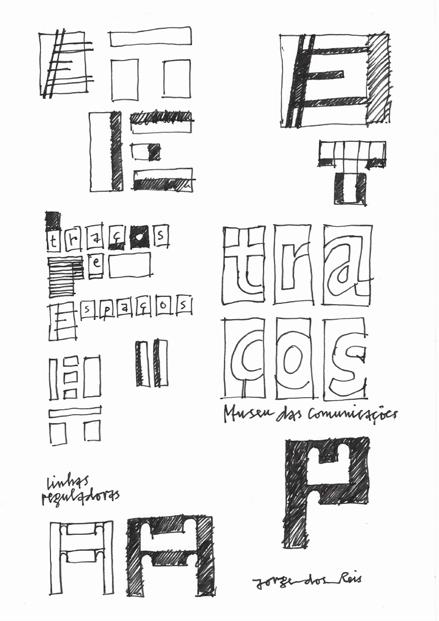 E T
E
E T
traços
e
Espaços
tra
ços
Museu das Comunicações
linhas
reguladoras
A A
P
Jorge dos Reis